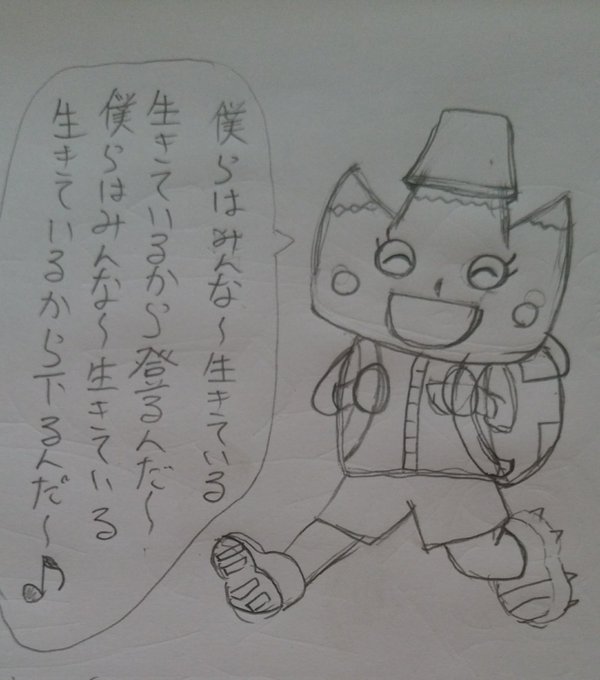 僕らはみんな〜生きている
生きているから登るんだ〜
僕らはみんな〜生きている
生きているから下るんだ〜♪